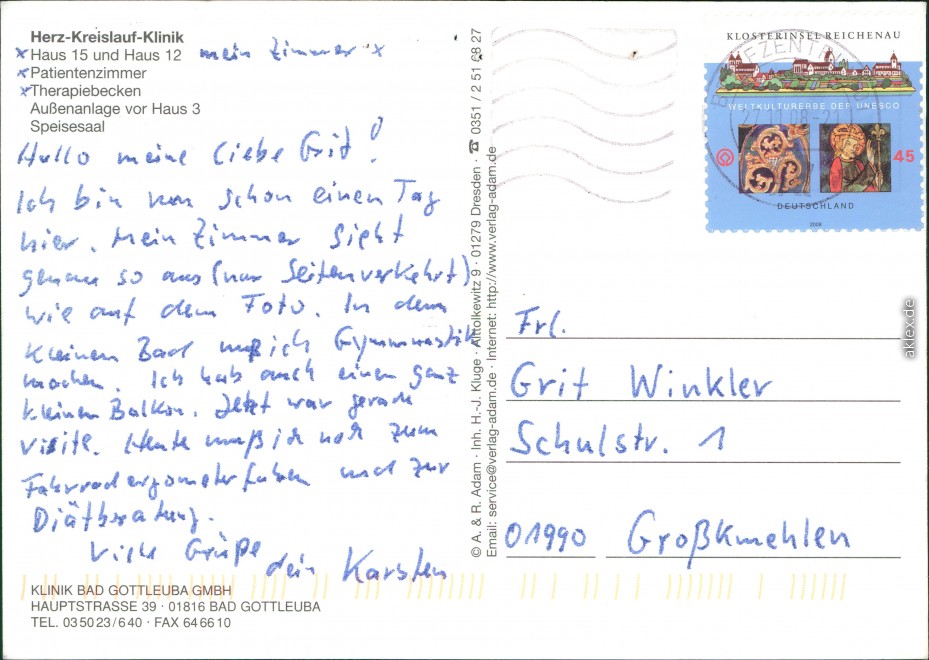 Herz-Kreislauf-Klinik
x Haus 15 und Haus 12 mein Zimmer x
x Patientenzimmer
x Therapiebecken
Außenanlage vor Haus 3
Speisesaal
Hallo meine liebe Grit!
Ich bin nun schon einen Tag
hier. Mein Zimmer sieht
genau so aus (nur Seitenverkehrt)
wie auf dem Foto. In dem
kleinen Bad muß ich Gymnastik
machen. Ich hab auch einen ganz
kleinen Balkon. Jetzt war gerade
Visite. Heute muß ich noch zum
Fahrradergometer fahren und zur
Diätberatung.
Viele Grüße
dein Karsten
KLINIK BAD GOTTLEUBA GMBH
HAUPTSTRASSE 39 · 01816 BAD GOTTLEUBA
TEL. 03 50 23 / 6 40 · FAX 64 66 10
© A. & R. Adam · Inh. H.-J. Kluge · Alttolkewitz 9 · 01279 Dresden · ☎ 0351 / 2 51 68 27
Email: service@verlag-adam.de · Internet: http://www.verlag-adam.de
KLOSTERINSEL REICHENAU
BRIEFZENTRUM
WELTKULTURERBE DER UNESCO
45
DEUTSCHLAND
2008
Frl.
Grit Winkler
Schulstr. 1
01990 Großkmehlen
aklex.de